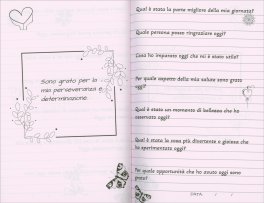 Sono grato per la
mia perseveranza e
determinazione.
Qual è stata la parte migliore della mia giornata?
Quale persona posso ringraziare oggi?
Cosa ho imparato oggi che mi è stato utile?
Per quale aspetto della mia salute sono grato
oggi?
Qual è stato un momento di bellezza che ho
osservato oggi?
Qual è stata la cosa più divertente e gioiosa che
ho sperimentato oggi?
Per quale opportunità che ho avuto oggi sono
grato?
DATA / /